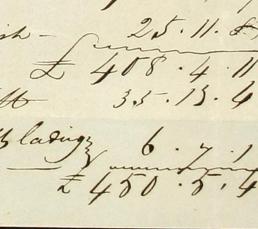 25.11.
£ 408.4.11
35.13.4
lading 6.7.1
£ 450.5.4